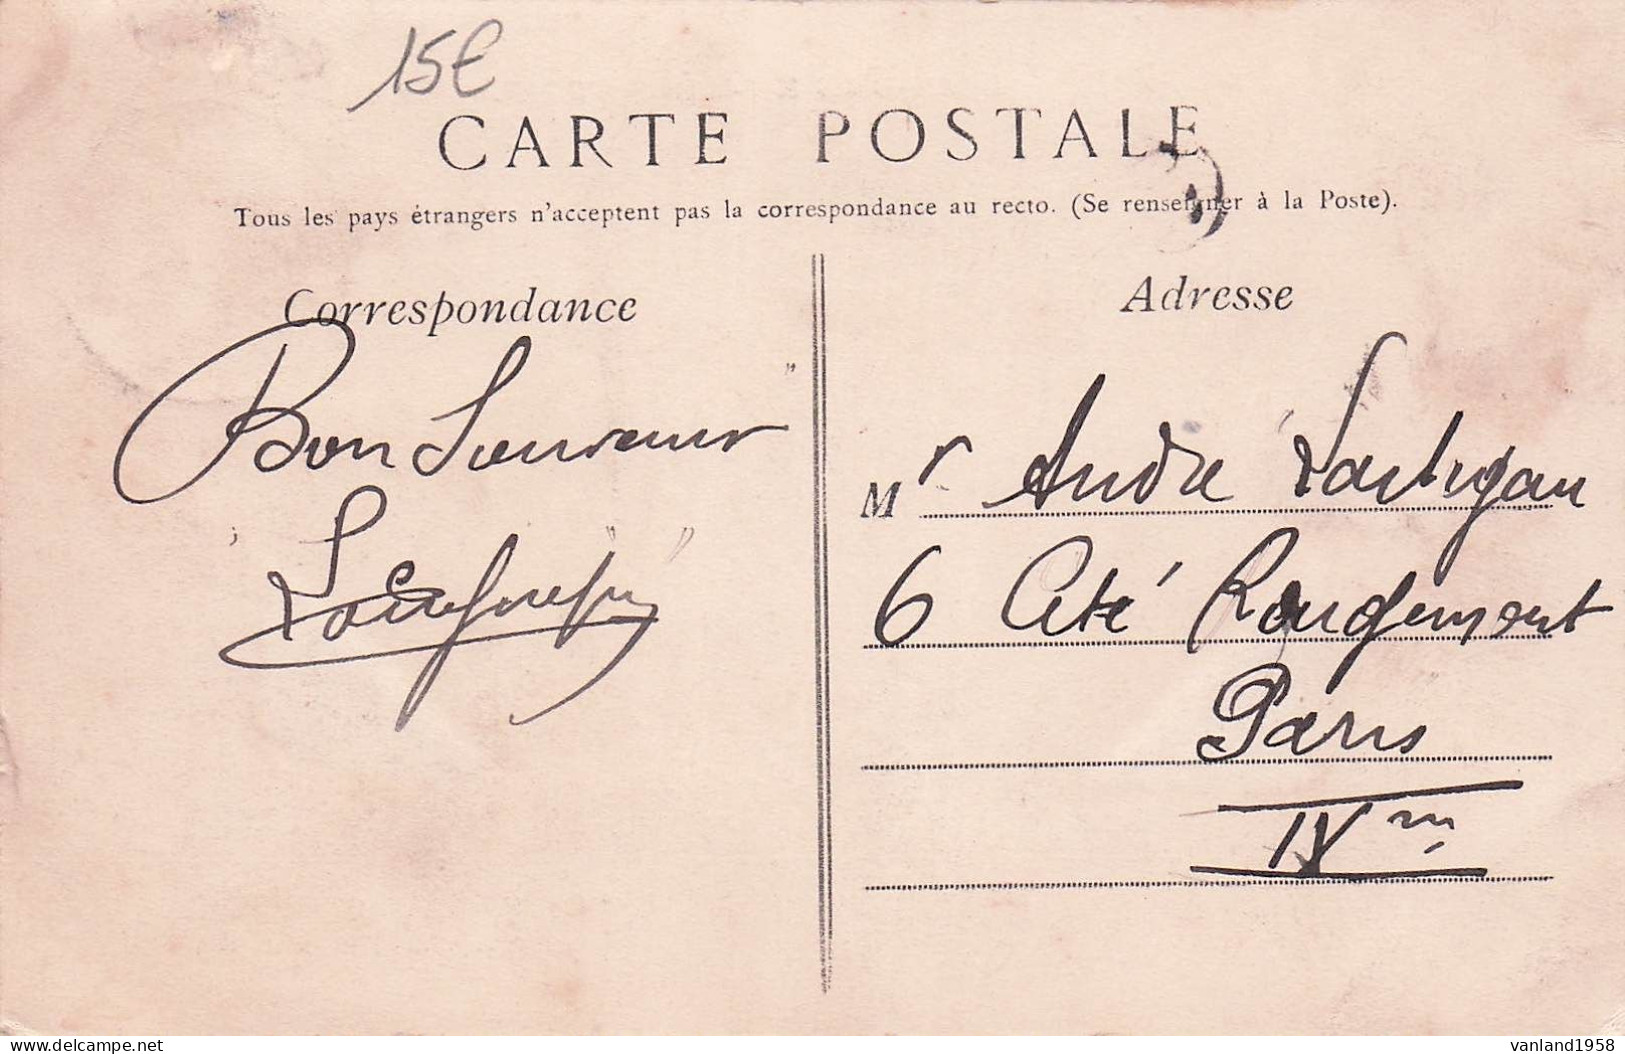 15€
CARTE POSTALE
Tous les pays étrangers n'acceptent pas la correspondance au recto. (Se renseigner à la Poste).
Correspondance
Adresse
Bon Souvenir
Mr André Lartigau
6 Cité Rougemont
Paris
IXm
delcampe.net
vanland1958